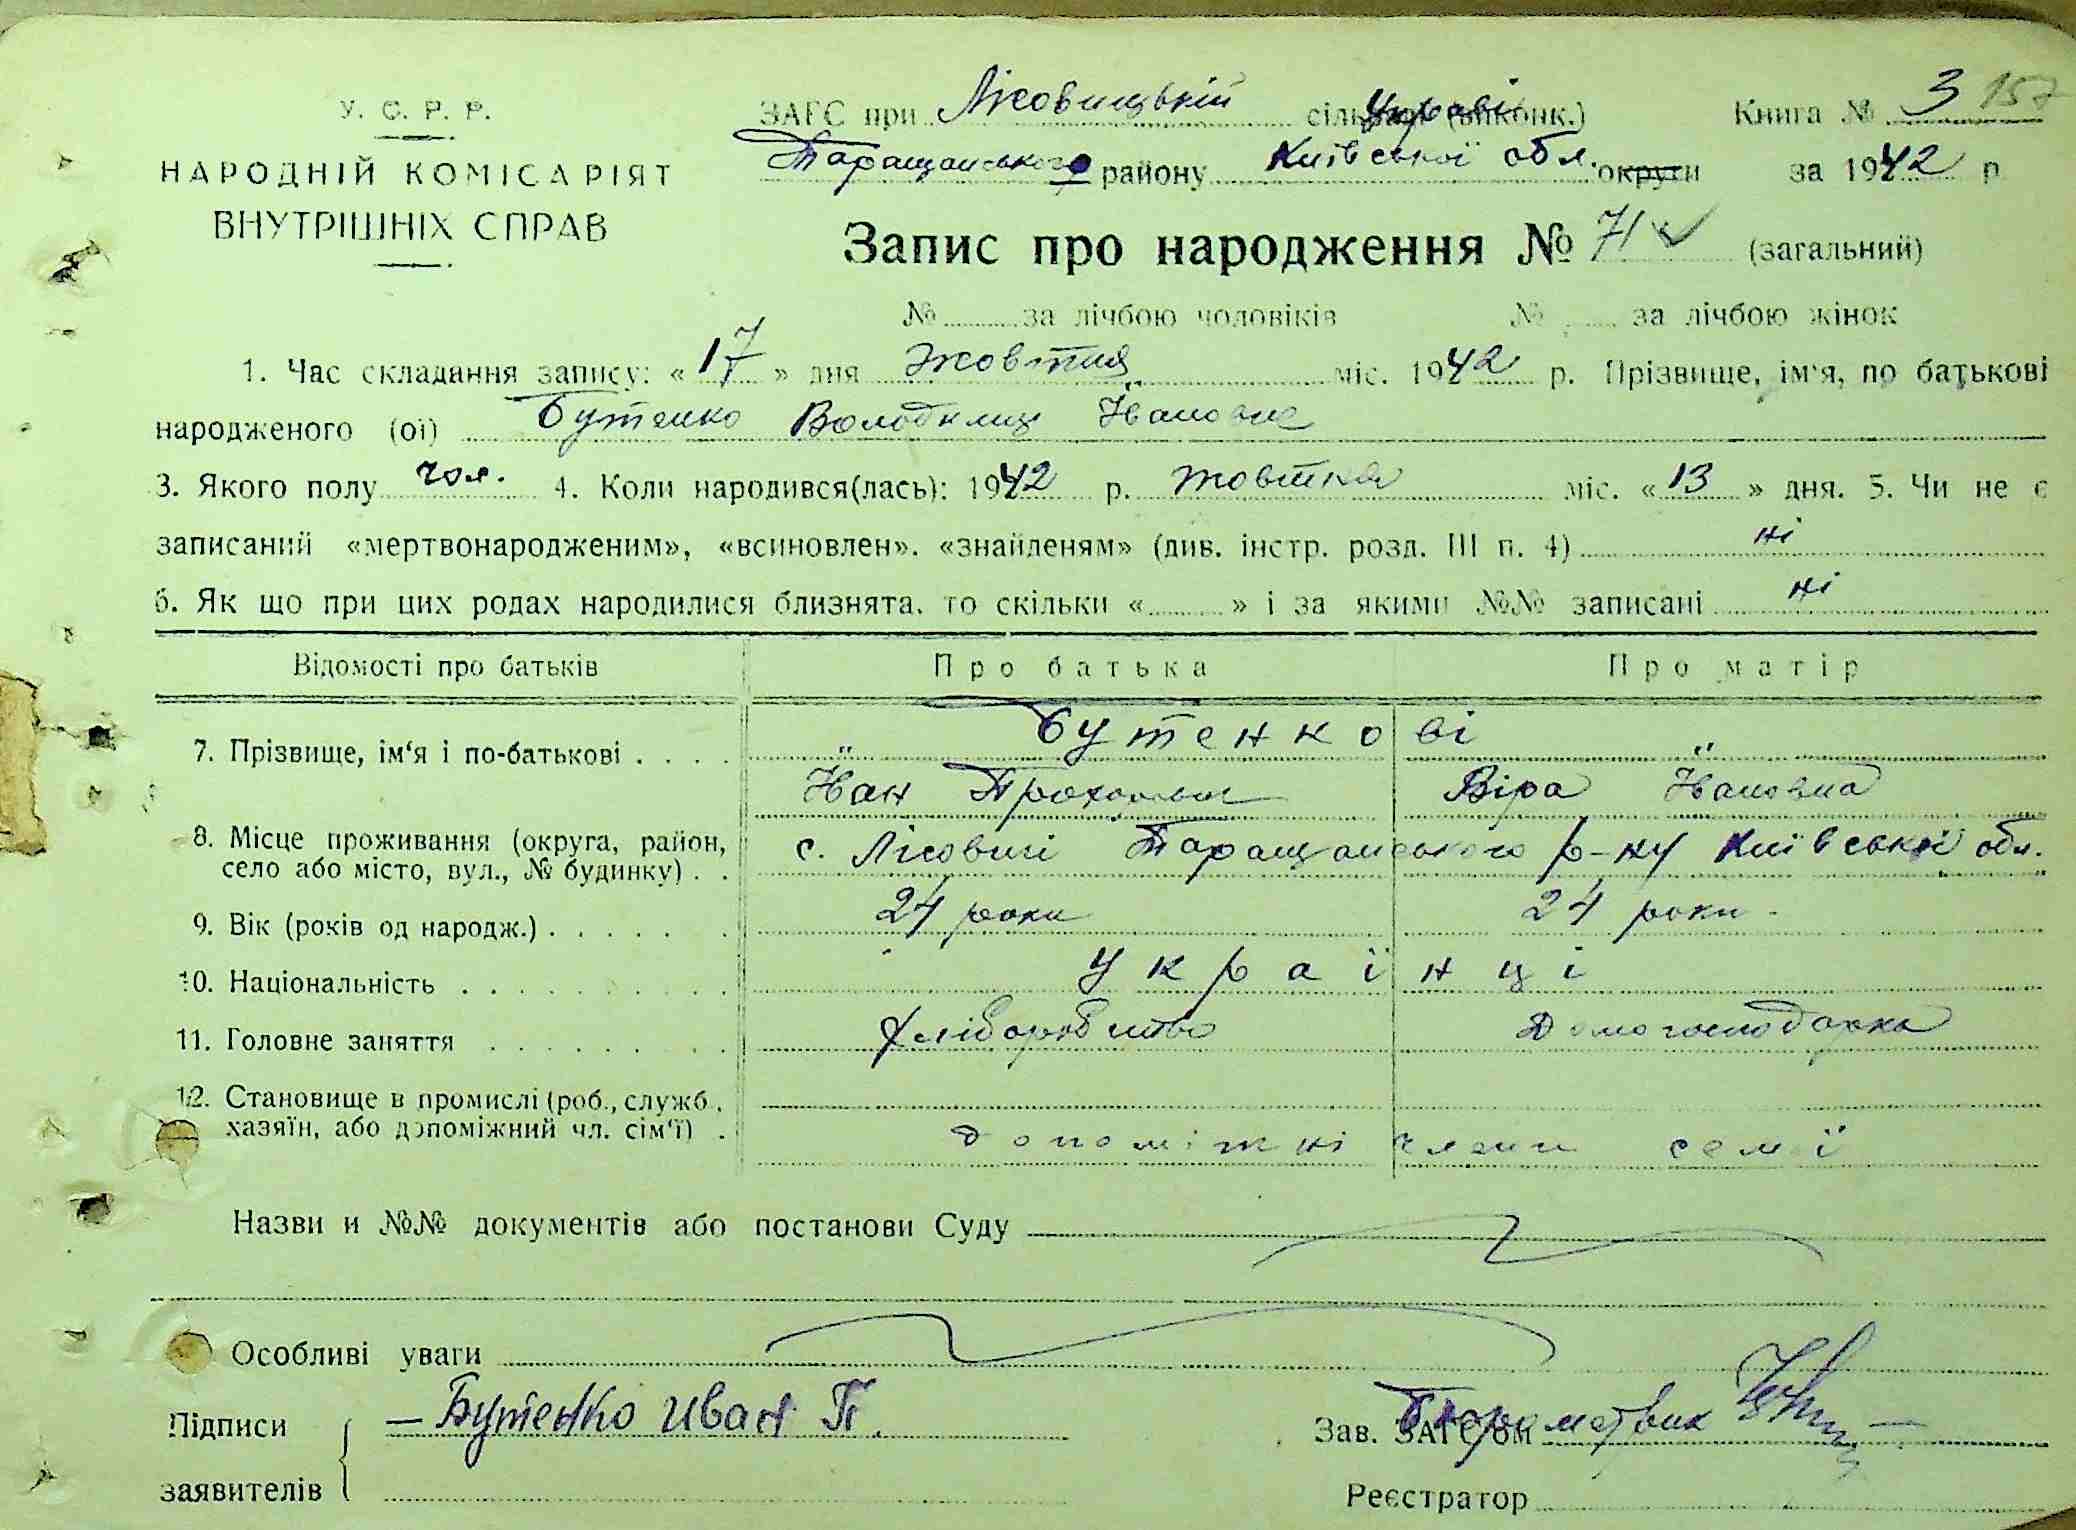 У. С. Р. Р.
НАРОДНІЙ КОМІСАРІЯТ
ВНУТРІШНІХ СПРАВ
ЗАГС при Лісовицькій сільради (виконк.) Управі Книга № 3 157
Таращанського району Київської обл. округи за 1942 р
Запис про народження № 71 (загальний)
№ за лічбою чоловіків № за лічбою жінок
1. Час складання запису: « 17 » дня Жовтня міс. 1942 р. Прізвище, ім'я, по батькові
народженого (ої) Бутенко Володимир Іванович
3. Якого полу чол. 4. Коли народився(лась): 1942 р. жовтня міс. « 13 » дня. 5. Чи не є
записаний «мертвонародженим», «всиновлен». «знайденям» (див. інстр. розд. III п. 4) ні
6. Як що при цих родах народилися близнята, то скільки « » і за якими №№ записані ні
Відомості про батьків Про батька Про матір
7. Прізвище, ім'я і по-батькові Бутенкові
Іван Прохорович Віра Івановна
8. Місце проживання (округа, район, село або місто, вул., № будинку) с. Лісовичі Таращанського р-ну Київської обл.
9. Вік (років од народж.) 24 роки 24 роки
10. Національність Українці
11. Головне заняття Хліборобство Домогосподарка
12. Становище в промислі (роб., служб., хазяїн, або допоміжний чл. сім'ї) допоміжні члени семї
Назви и №№ документів або постанови Суду
Особливі уваги
Підписи Бутенко Иван П. Зав. ЗАГС'ом
заявителів Реєстратор